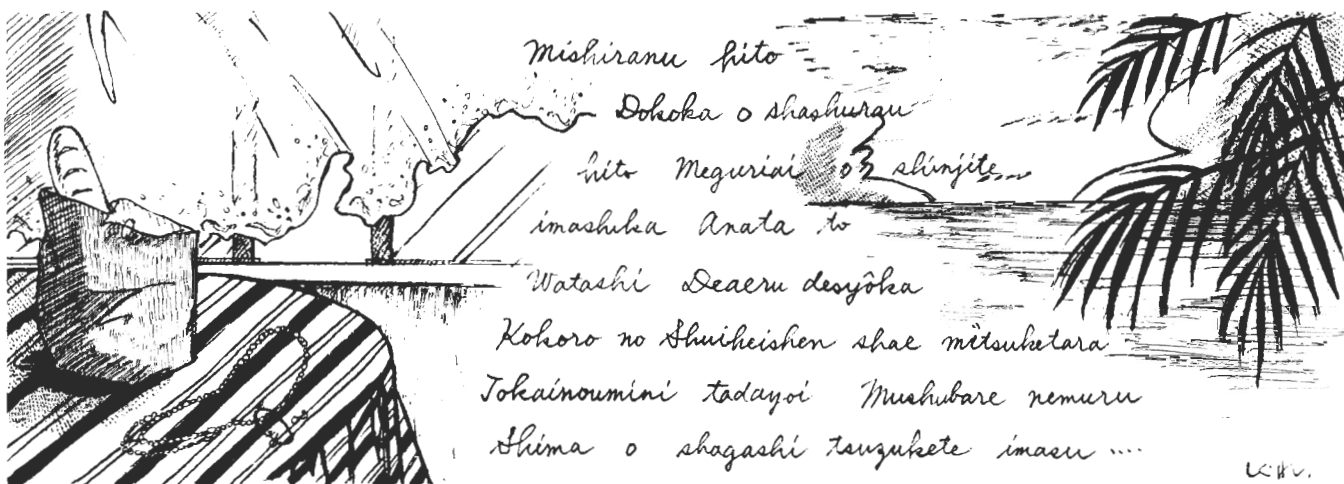 Mishiranu hito
Dokoka o shashurau
hito Meguriai o shinjite
imashuka Anata to
Watashi Deaeru desyôka
Kokoro no Shuiheishen shae mitsuketara
Tokainoumini tadayoi Mushubare nemuru
Shima o shagashi tsuzukete imasu ....